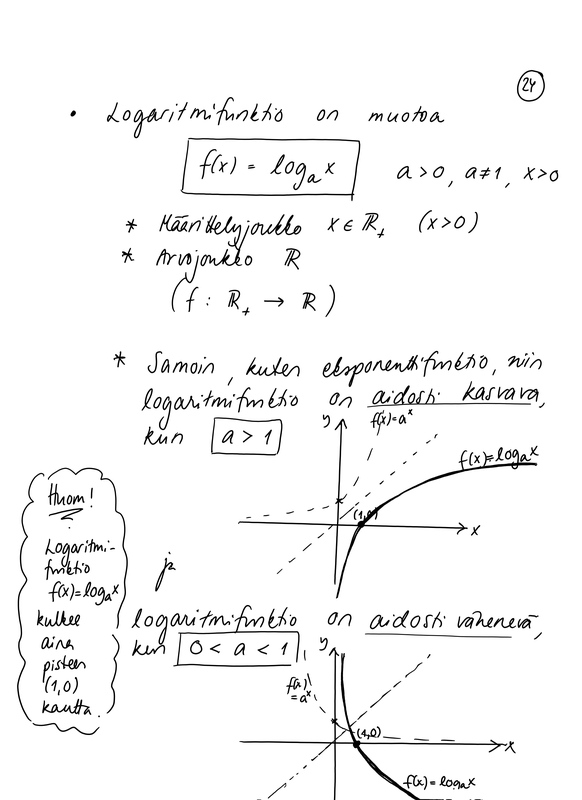 24
• Logaritmifunktio on muotoa
f(x) = logₐ x   a>0, a≠1, x>0
* Määrittelyjoukko x ∈ ℝ₊ (x>0)
* Arvojoukko ℝ
(f : ℝ₊ → ℝ)
* Samoin, kuten eksponenttifunktio, niin
logaritmifunktio on aidosti kasvava,
kun a > 1
y
f(x)=aˣ
f(x)=logₐx
(1,0)
x
Huom!
Logaritmi-
funktio
f(x)=logₐx
kulkee
aina
pisteen
(1,0)
kautta.
ja
logaritmifunktio on aidosti vähenevä,
kun 0 < a < 1
y
f(x)
=aˣ
(1,0)
x
f(x)=logₐx